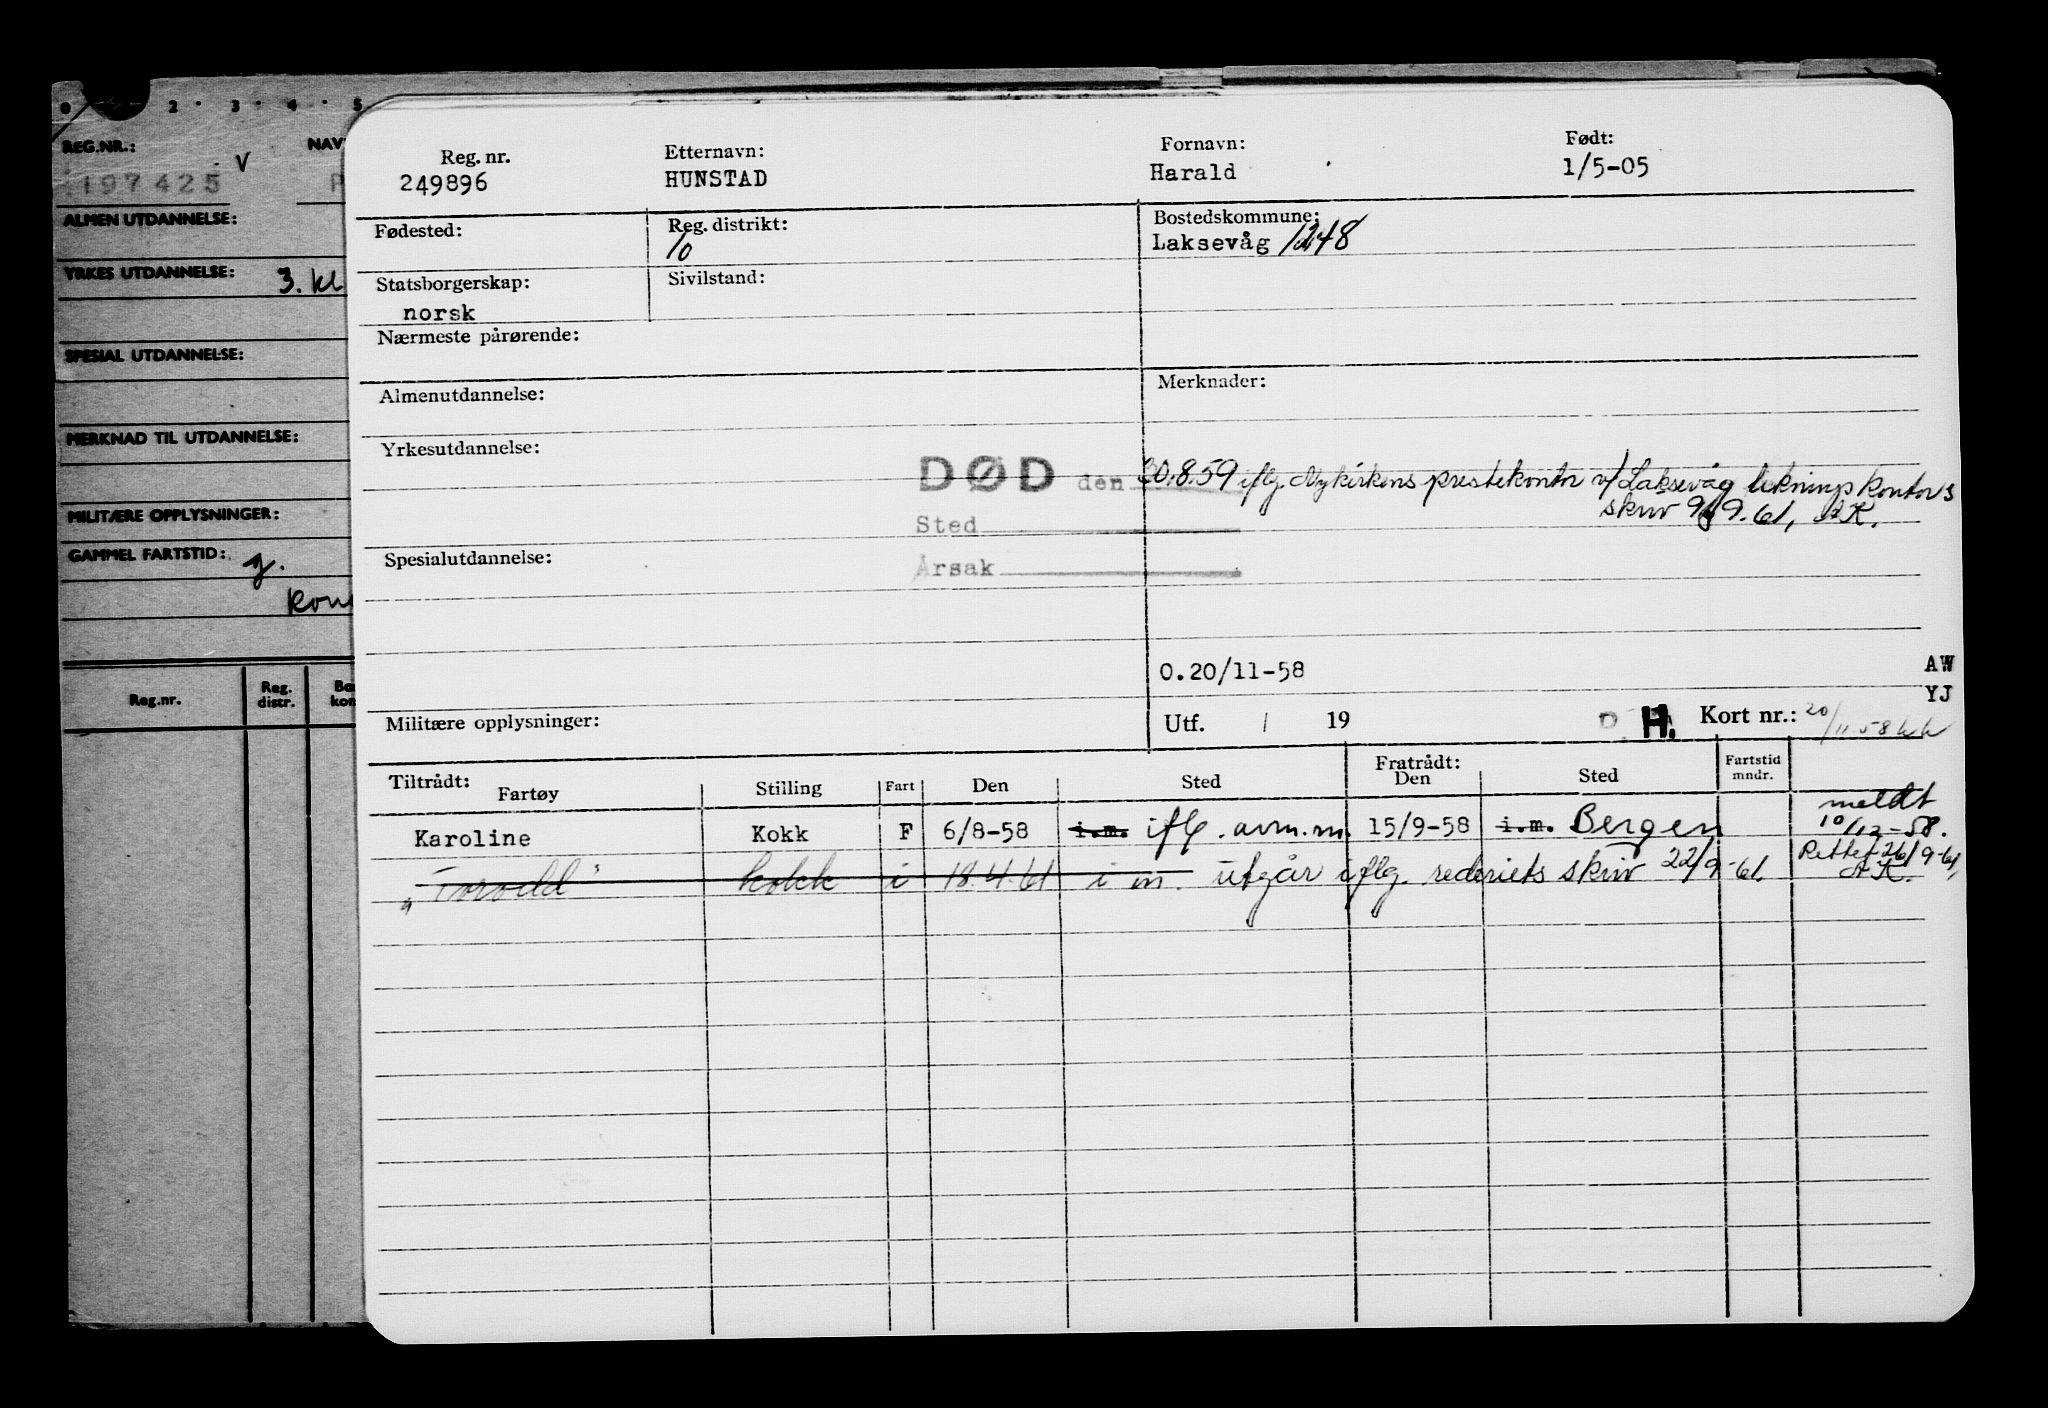 0 2 · 3 · 4 · 5
REG.NR.: V NAV
197425 P
ALMEN UTDANNELSE:
YRKES UTDANNELSE: 3. kl
SPESIAL UTDANNELSE:
MERKNAD TIL UTDANNELSE:
MILITÆRE OPPLYSNINGER:
GAMMEL FARTSTID: g.
Reg.nr. Reg. distr.
Reg. nr. Etternavn: Fornavn: Født:
249896 HUNSTAD Harald 1/5-05
Fødested: Reg. distrikt: Bostedskommune:
10 Laksevåg 1248
Statsborgerskap: Sivilstand:
norsk
Nærmeste pårørende:
Almenutdannelse: Merknader:
Yrkesutdannelse:
DØD den 30.8.59 iflg. Nykirkens prestekontor v/ Laksevåg likningskontors
Sted skriv 9/9.61, AK.
Spesialutdannelse: Årsak
0.20/11-58 AW
YJ
Militære opplysninger: Utf. / 19 H. Kort nr.: 20/11 58
Tiltrådt: Fratrådt: Fartstid
Fartøy Stilling Fart Den Sted Den Sted mndr.
meldt
Karoline Kokk F 6/8-58 i.m. iflg. avm.m. 15/9-58 i.m. Bergen 10/12-58.
"Torodd" kokk i 18.4.61 i m. utgår iflg. rederiets skriv 22/9-61. Rettet 26/9-61,
AK.